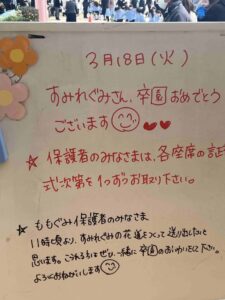 3月18日(火)
すみれぐみさん、卒園おめでとう
ございます
★ 保護者のみなさまは、各座席の
式次第を1つずつお取り下さい。
★ ももぐみ保護者のみなさま
11時頃より、すみれぐみの花道をつくって送り出したいと
思います。これるかたはぜひ、一緒に卒園のお祝いをして下さい。
よろしくおねがいします